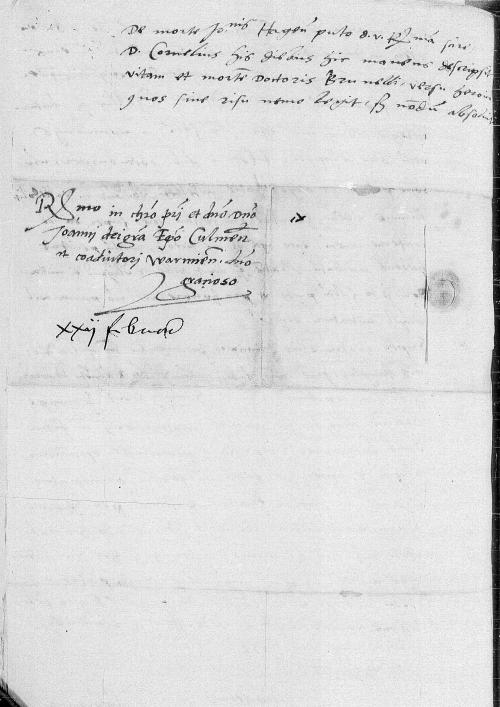 De morte Jo.nis Hagen puto d. v. R. iam scire
D. Cornelius his diebus hic manens descripsit
vitam et morte doctoris Brunelli, versu heroic
quos sine risu nemo legit, nodu absoluit
R mo in chro pri et dno dno
Joanni dei gra Epo Culmen
et coadiutori warmien. dno
gratioso
xxij februarij